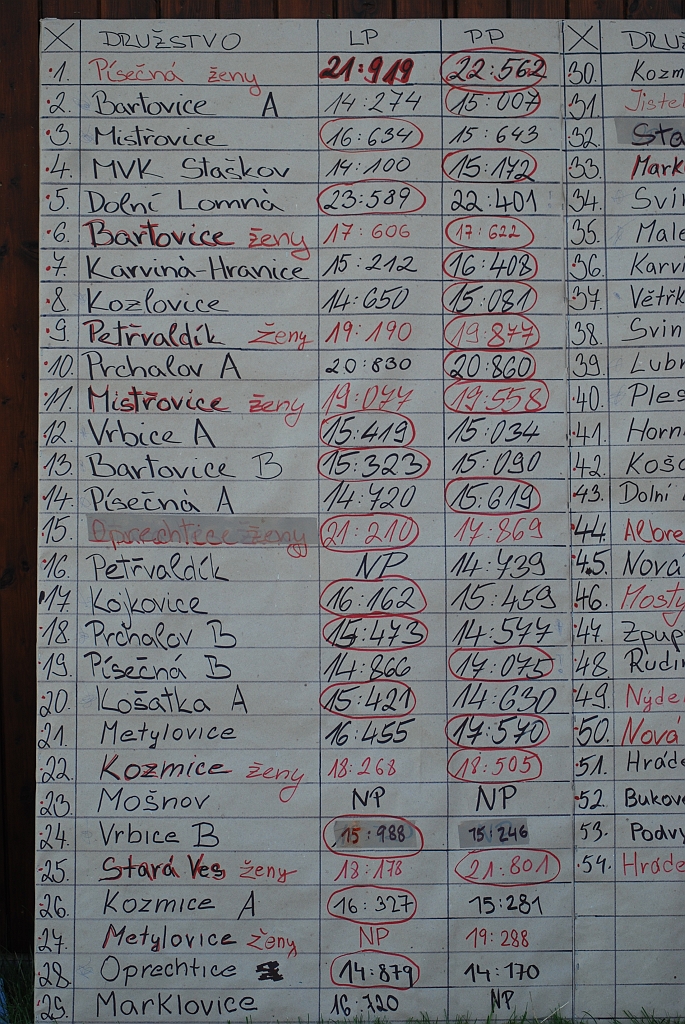 X DRUŽSTVO LP PP X DRUŽ
1. Písečná ženy 21:919 22:562 30. Kozm
2. Bartovice A 14:274 15:007 31. Jistel
3. Mistřovice 16:634 15:643 32. Sta
4. MVK Staškov 14:100 15:172 33. Mark
5. Dolní Lomná 23:589 22:401 34. Svin
6. Bartovice ženy 17:606 17:622 35. Male
7. Karviná-Hranice 15:212 16:408 36. Karvi
8. Kozlovice 14:650 15:081 37. Větřk
9. Petřvaldík ženy 19:190 19:877 38. Svin
10. Prchalov A 20:830 20:860 39. Lubn
11. Mistřovice ženy 19:077 19:558 40. Ples
12. Vrbice A 15:419 15:034 41. Horn
13. Bartovice B 15:323 15:090 42. Košá
14. Písečná A 14:720 15:619 43. Dolní
15. Oprechtice ženy 21:210 17:869 44. Albre
16. Petřvaldík NP 14:739 45. Nová
17. Kojkovice 16:162 15:459 46. Mosty
18. Prchalov B 15:473 14:577 47. Zpup
19. Písečná B 14:866 17:075 48. Rudin
20. Košatka A 15:421 14:630 49. Nýde
21. Metylovice 16:455 17:570 50. Nová
22. Kozmice ženy 18:268 18:505 51. Hráde
23. Mošnov NP NP 52. Bukove
24. Vrbice B 15:988 15:246 53. Podvy
25. Stará Ves ženy 18:178 21:801 54. Hráde
26. Kozmice A 16:327 15:281
27. Metylovice ženy NP 19:288
28. Oprechtice 14:879 14:170
29. Marklovice 16:720 NP